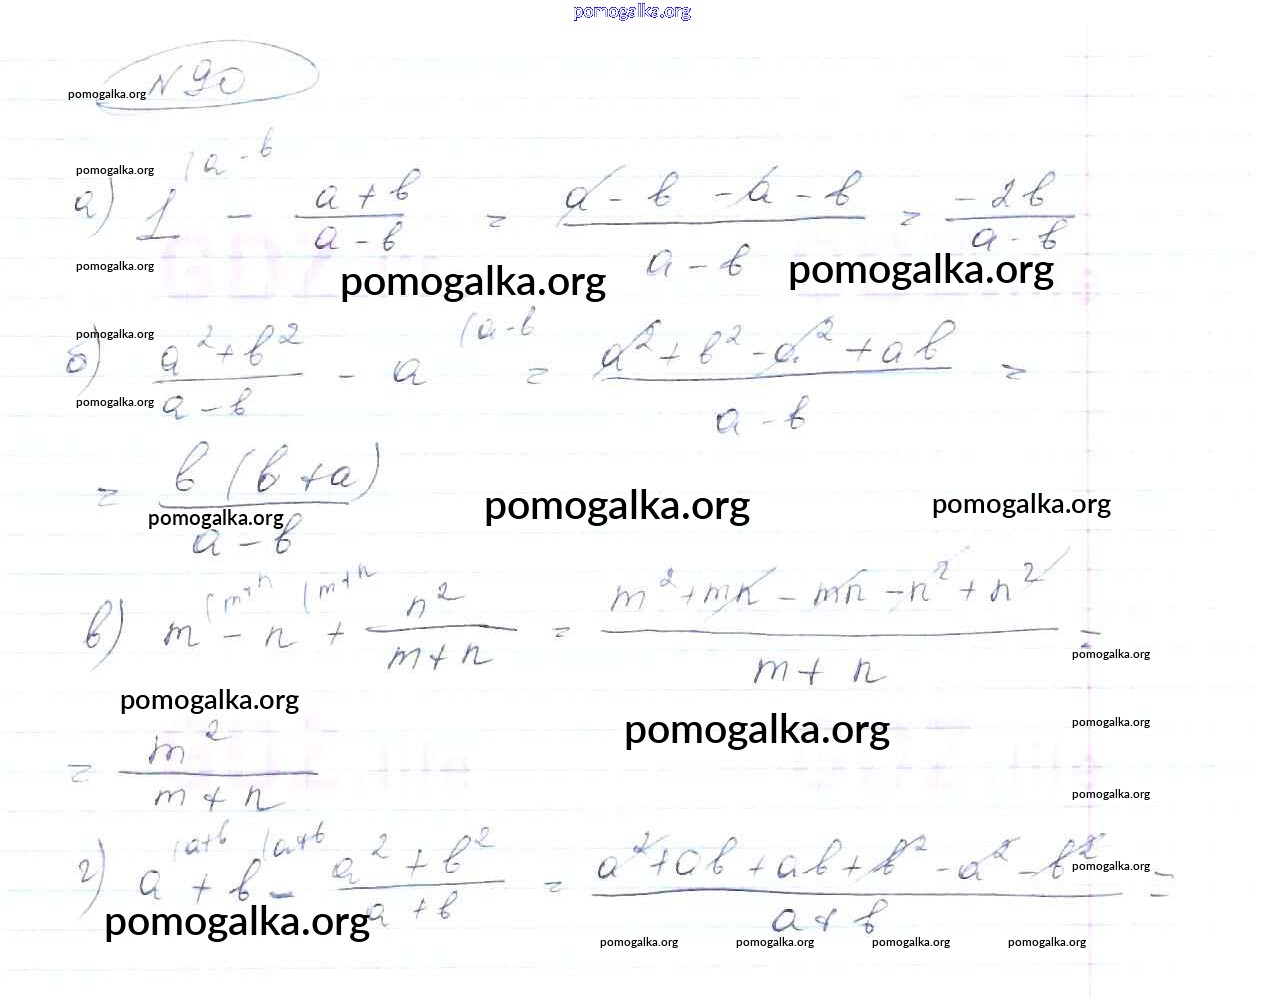 pomogalka.org
N 90
pomogalka.org
pomogalka.org
а) 1 (a - b - (a + b)/(a - b) = (a - b - a - b)/(a - b) = (-2b)/(a - b)
pomogalka.org pomogalka.org pomogalka.org
pomogalka.org
б) (a² + b²)/(a - b) - a (a - b = (a² + b² - a² + ab)/(a - b) =
pomogalka.org
= (b (b + a))/(a - b)
pomogalka.org pomogalka.org pomogalka.org
в) m (m + n - n (m + n + n²/(m + n) = (m² + mn - mn - n² + n²)/(m + n) =
pomogalka.org
pomogalka.org pomogalka.org pomogalka.org
= m²/(m + n)
pomogalka.org
г) a (a + b + b (a + b - (a² + b²)/(a + b) = (a² + ab + ab + b² - a² - b²)/(a + b) =
pomogalka.org
pomogalka.org pomogalka.org pomogalka.org pomogalka.org pomogalka.org